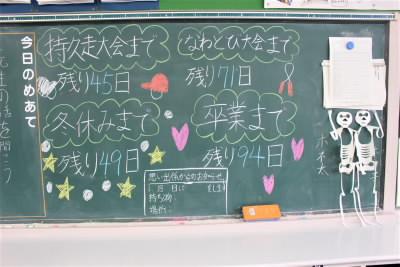 今日のめあて
持久走大会まで
残り45日
なわとび大会まで
残り71日
冬休みまで
残り49日
卒業まで
残り94日
思い出係からのお知らせ
月 日に
持ち物:
場所:
ホネ太